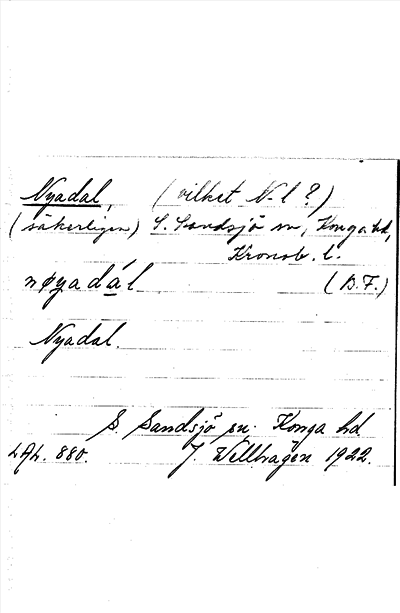 Nyadal, (vilket N-l ?)
(säkerligen) S. Sandsjö sn, Konga hd,
Kronob. l.
nøyadál (D.F.)
Nyadal.
S. Sandsjö sn. Konga hd
LAL. 880. J. Wellhagen 1922.